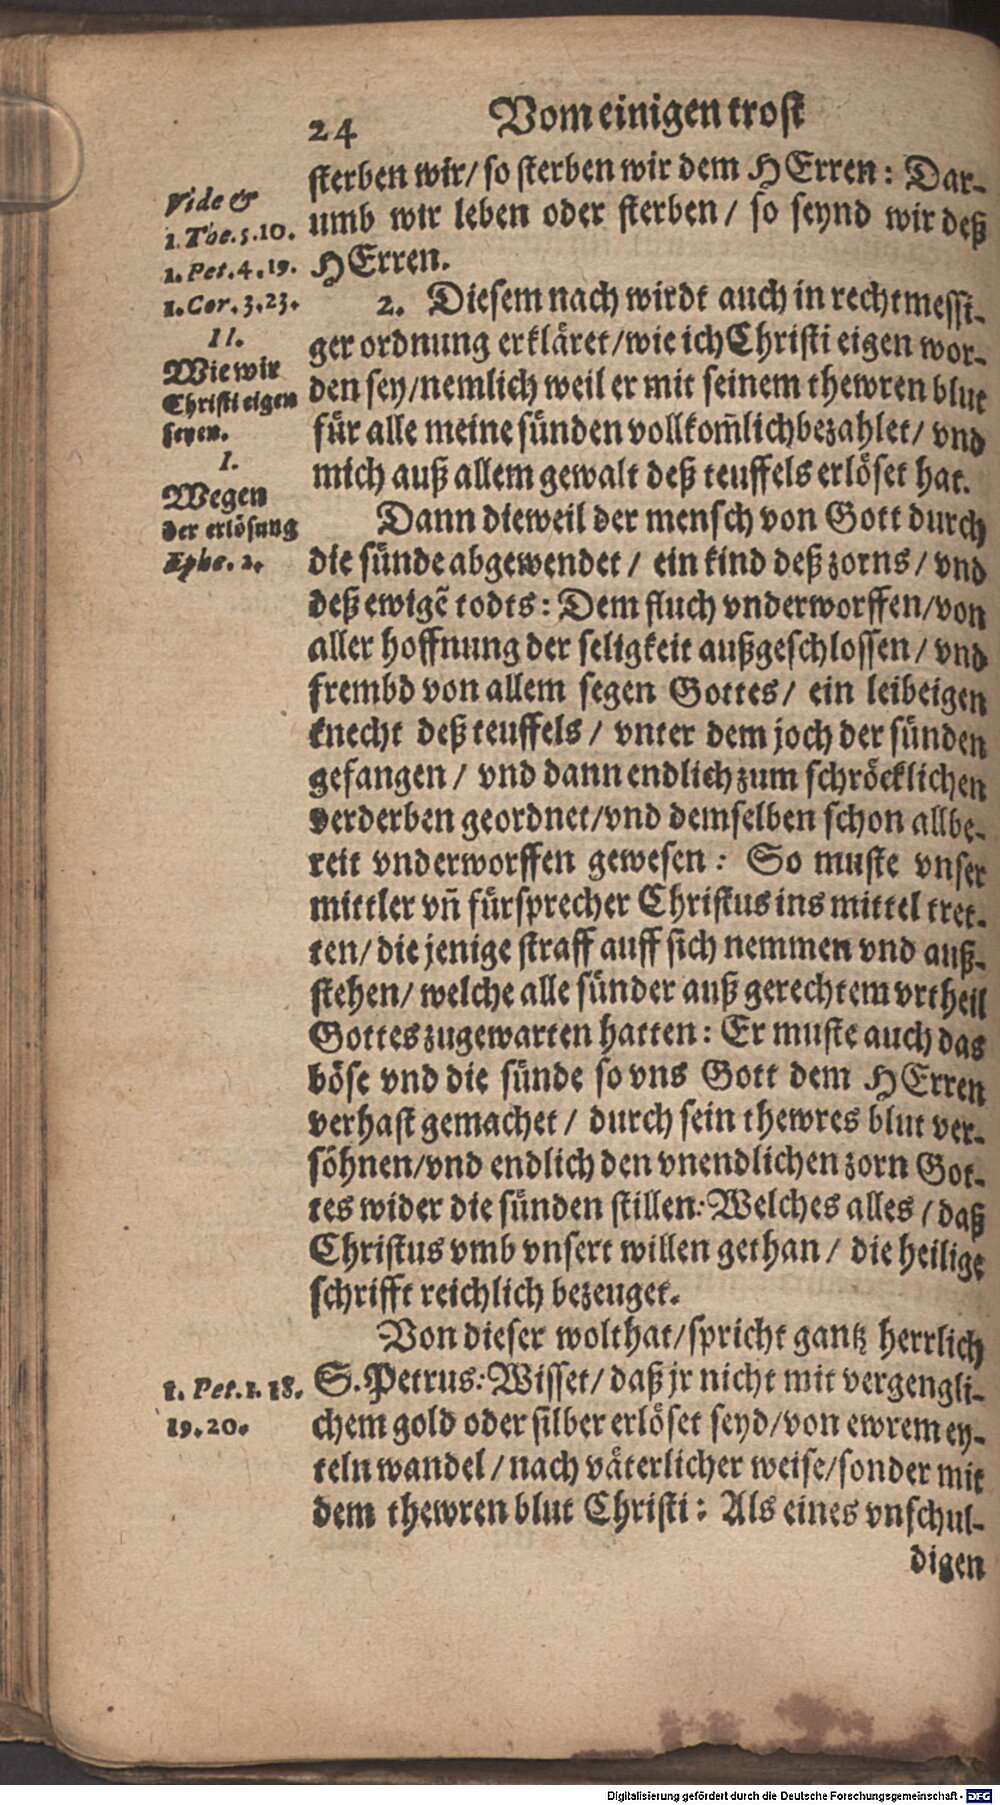 24 Vom einigen trost
sterben wir/ so sterben wir dem HErren: Dar-
umb wir leben oder sterben/ so seynd wir deß
HErren.
2. Diesem nach wirdt auch in rechtmessi-
ger ordnung erkläret/wie ich Christi eigen wor-
den sey/nemlich weil er mit seinem thewren blut
für alle meine sünden vollkom̃lich bezahlet/ vnd
mich auß allem gewalt deß teuffels erlöset hat.
Dann dieweil der mensch von Gott durch
die sünde abgewendet/ ein kind deß zorns/ vnd
deß ewigẽ todts: Dem fluch vnderworffen/von
aller hoffnung der seligkeit außgeschlossen/ vnd
frembd von allem segen Gottes/ ein leibeigen
knecht deß teuffels/ vnter dem joch der sünden
gefangen/ vnd dann endlich zum schröcklichen
verderben geordnet/vnd demselben schon allbe-
reit vnderworffen gewesen: So muste vnser
mittler vñ fürsprecher Christus ins mittel tret-
ten/ die jenige straff auff sich nemmen vnd auß-
stehen/ welche alle sünder auß gerechtem vrtheil
Gottes zugewarten hatten: Er muste auch das
böse vnd die sünde so vns Gott dem HErren
verhast gemachet/ durch sein thewres blut ver-
söhnen/vnd endlich den vnendlichen zorn Got-
tes wider die sünden stillen: Welches alles/ daß
Christus vmb vnsert willen gethan/ die heilige
schrifft reichlich bezeuget.
Von dieser wolthat/spricht gantz herrlich
S. Petrus: Wisset/ daß jr nicht mit vergengli-
chem gold oder silber erlöset seyd/von ewrem ey-
teln wandel/nach väterlicher weise/sonder mit
dem thewren blut Christi: Als eines vnschul-
digen
Vide &
1. The. 5. 10.
1. Pet. 4. 19.
1. Cor. 3. 23.
II.
Wie wir
Christi eigen
seyen.
I.
Wegen
der erlösung
Ephe. 2.
1. Pet. 1. 18.
19. 20.
Digitalisierung gefördert durch die Deutsche Forschungsgemeinschaft - DFG